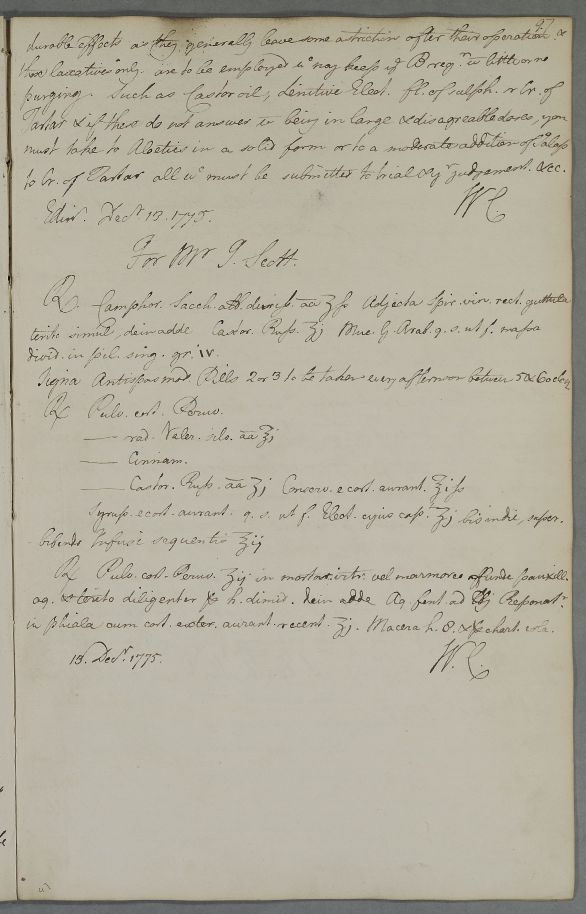 97
durable effects as they generally leave some astriction after their operation &
those laxatives only are to be employed wc may keep ye B. regr. wt little or no
purging. Such as Castor oil, Lenitive Elect. fl. of sulph. & Cr. of
Tartar & if these do not answer or being in large & disagreable doses, you
must take to Aloetics in a solid form or to a moderate addition of Jalap
to Cr. of Tartar all wc must be submitted to trial & yr judgement. &c.
Edinr. Decr. 13. 1775. W C
For Mr J. Scott.
R. Camphor. Sacch. alb. duriss. āā ʒſs Adjecta Spir. vin. rect. guttula
terito simul, dein adde Castor. Russ. ʒj Muc. G. Arab. q. s. ut f. massa
divid. in pil. sing. gr. iv.
Signa Antispasmod Pills 2 or 3 to be taken every afternoon between 5 & 6 oclock
R Pulv. cort. Peruv.
— rad. Valer. silv. āā ℥j
— Cinnam.
— Castor. Russ. āā ʒj Conserv. e cort. aurant. ℥iſs
Syrup. e cort. aurant. q. s. ut f. Elect. cujus cap. ʒj bis indie, super-
bibendo Infusi sequentis ℥ij
R Pulv. cort. Peruv. ℥ij in mortar. vitr. vel marmoreo affunde pauxill.
aq. & terito diligenter p h. dimid. dein adde Aq. font. ad ℔j Reponatr.
in phiala cum cort. exter. aurant. recent. ʒj. Macera h. 8. & p chart. cola.
13. Decr. 1775. W. C.